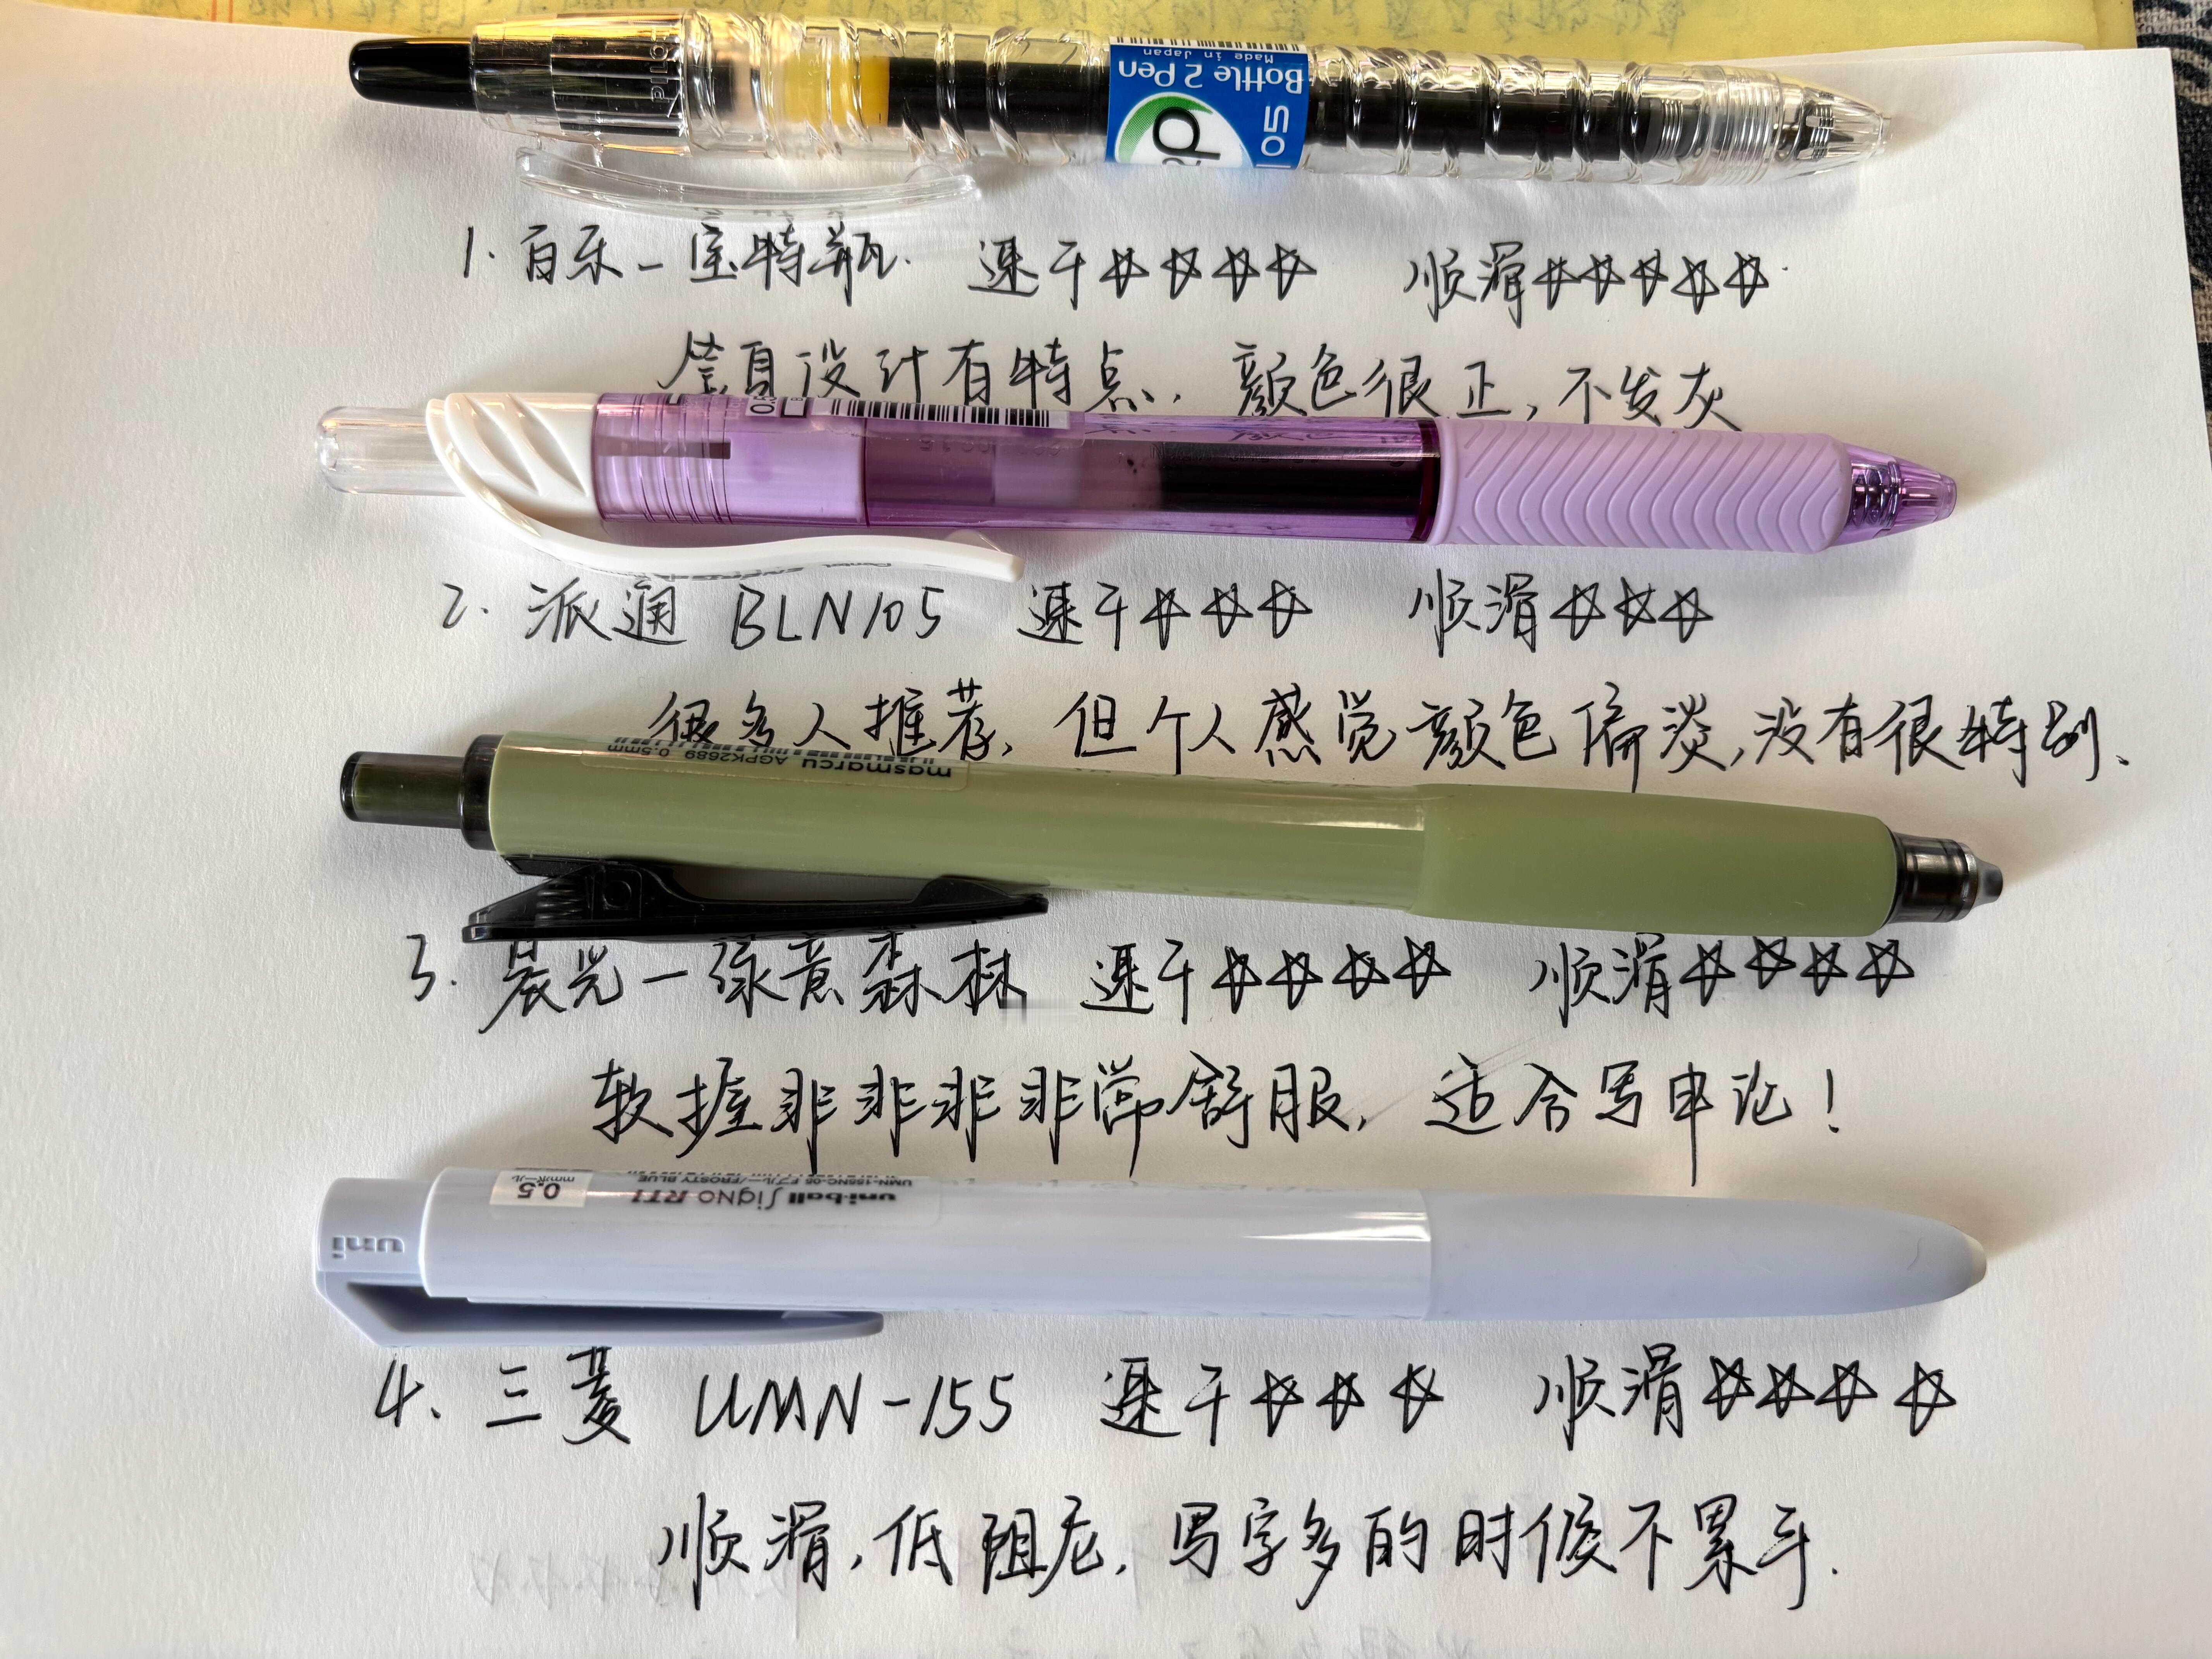 Bottle 2 Pen
Made in Japan
05
1. 百乐-宝特瓶. 速干☆☆☆☆ 顺滑☆☆☆☆☆.
笔身设计有特点, 颜色很正, 不发灰
2. 派通 BLN105 速干☆☆☆ 顺滑☆☆☆
很多人推荐, 但个人感觉颜色偏淡, 没有很特别、
masmarcu AGPK2689
0.5mm
3. 晨光-绿意森林 速干☆☆☆☆ 顺滑☆☆☆☆
软握非非非非常舒服, 适合写申论!
uni
0.5
mmボール
uni-ball Signo RT1
4. 三菱 UMN-155 速干☆☆☆ 顺滑☆☆☆☆
顺滑, 低阻尼, 写字多的时候不累手.